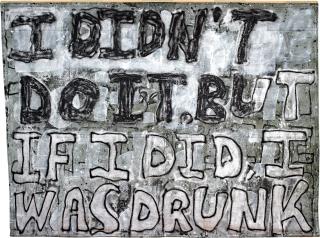 I DIDN'T
DO IT. BUT
IF I DID, I
WAS DRUNK